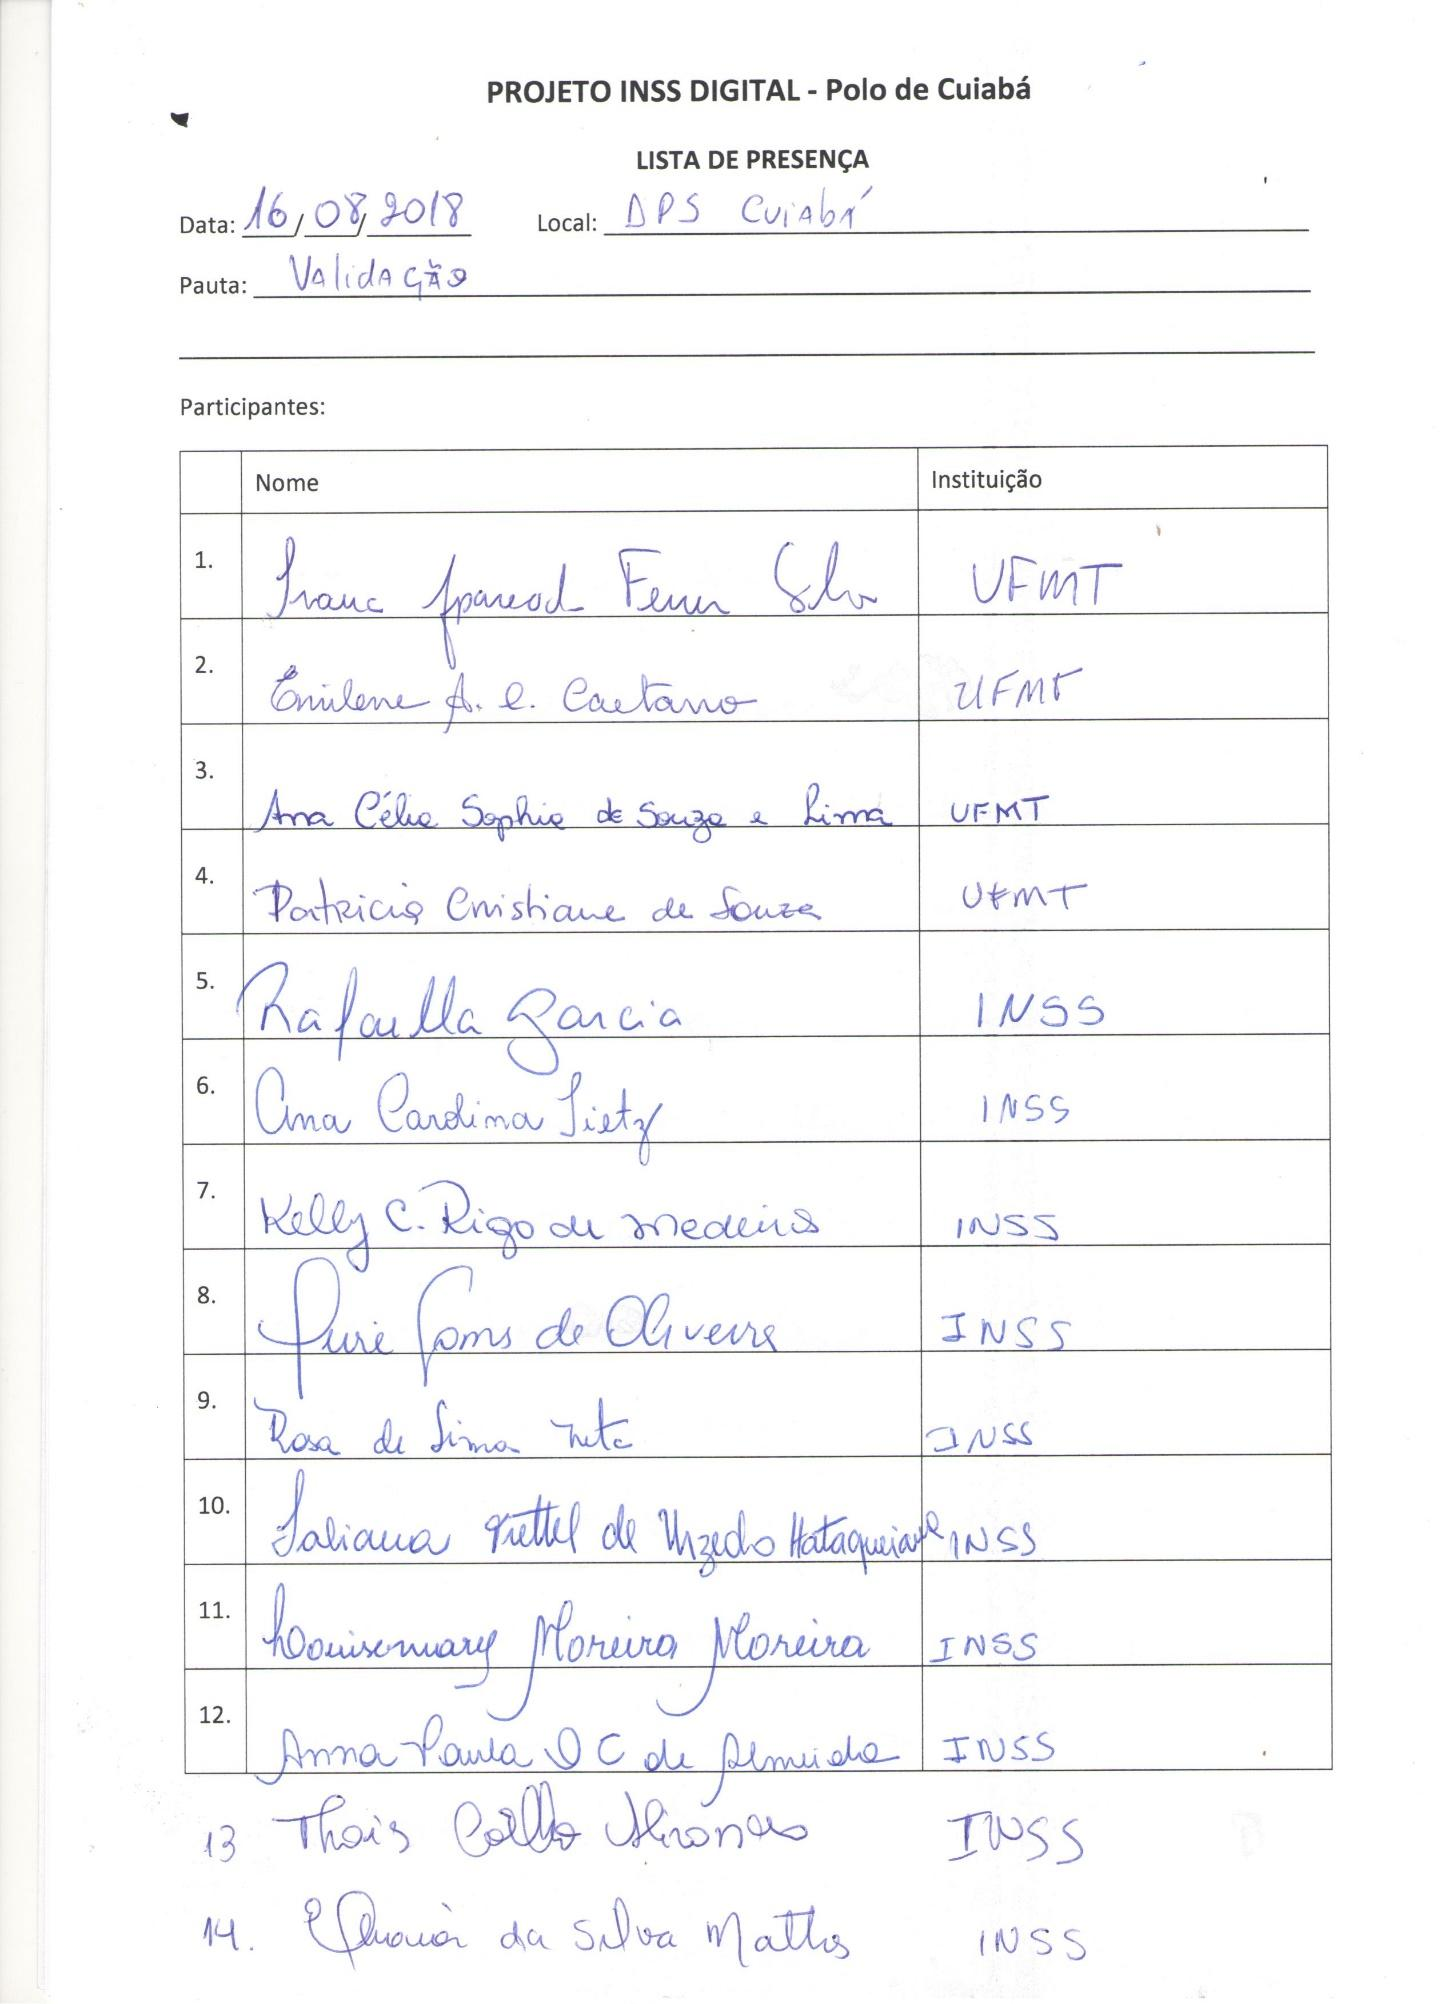 PROJETO INSS DIGITAL - Polo de Cuiabá
LISTA DE PRESENÇA
Data: 16/08/2018 Local: APS Cuiabá
Pauta: Validação
Participantes:
Nome Instituição
1. Silva UFMT
2. Emilene A. C. Caetano UFMT
3. Ana Célia Sophia de Souza e Lima UFMT
4. Patricia Cristiane de Souza UFMT
5. Rafaella Garcia INSS
6. Ana Carolina Tietz INSS
7. Kelly C. Rigo de Medeiros INSS
8. Yuri Gomes de Oliveira INSS
9. Rosa de Lima Neta INSS
10. Taliana Trettel de INSS
11. Moreira Moreira INSS
12. Anna Paula O C de Almeida INSS
13 Thais Coelho Miranda INSS
14. da Silva Mattos INSS